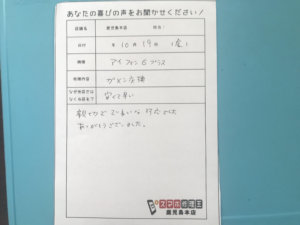 あなたの喜びの声をお聞かせください!
店舗名 鹿児島本店 担当:
日付 年 10月 19日 (金)
機種 アイフォン6プラス
修理内容 ガメン交換
なぜ当店では
なくる前まで 安くて早い
親切でていねいな対応でした
ありがとうございました。
スマホ修理王
鹿児島本店